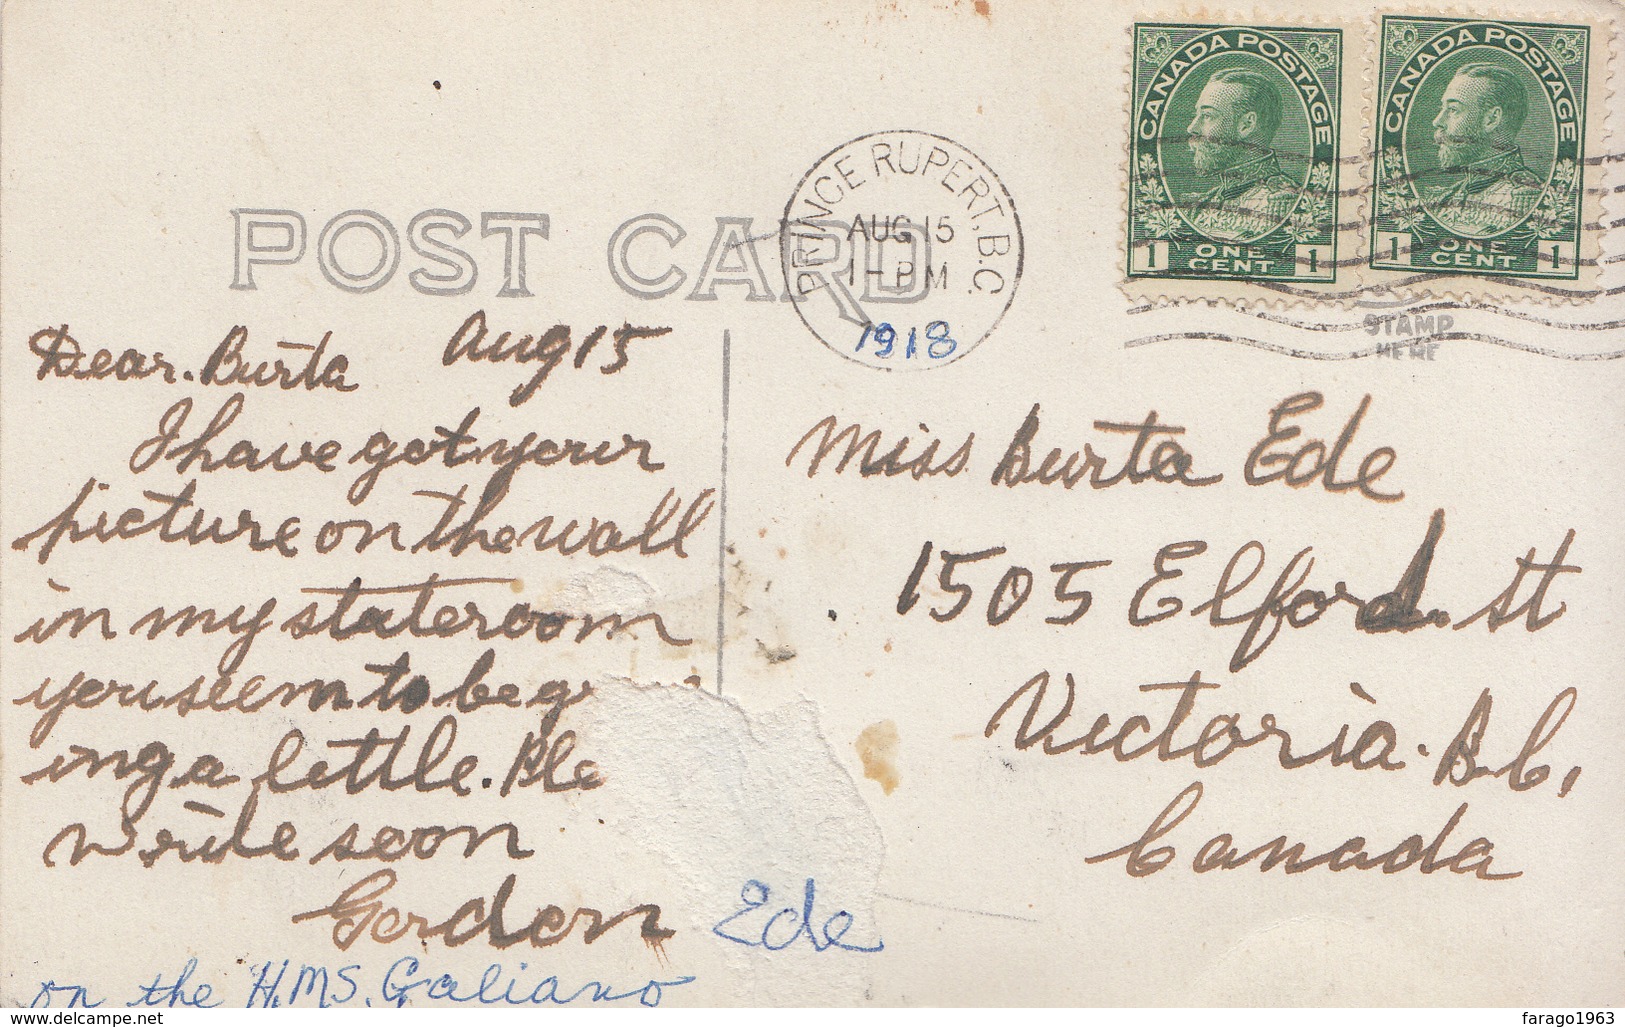 POST CARD
PRINCE RUPERT, B.C.
AUG 15
1 - PM
1918
CANADA POSTAGE
1 ONE CENT 1
CANADA POSTAGE
1 ONE CENT 1
STAMP
HERE
Dear. Burta Aug 15
I have got your
picture on the wall
in my stateroom
you seem to be
ing a little.
write soon
Gordon Ede
on the H.M.S. Galiano
Miss Burta Ede
1505 Elford. St
Victoria. B.C,
Canada
www.delcampe.net
farago1963